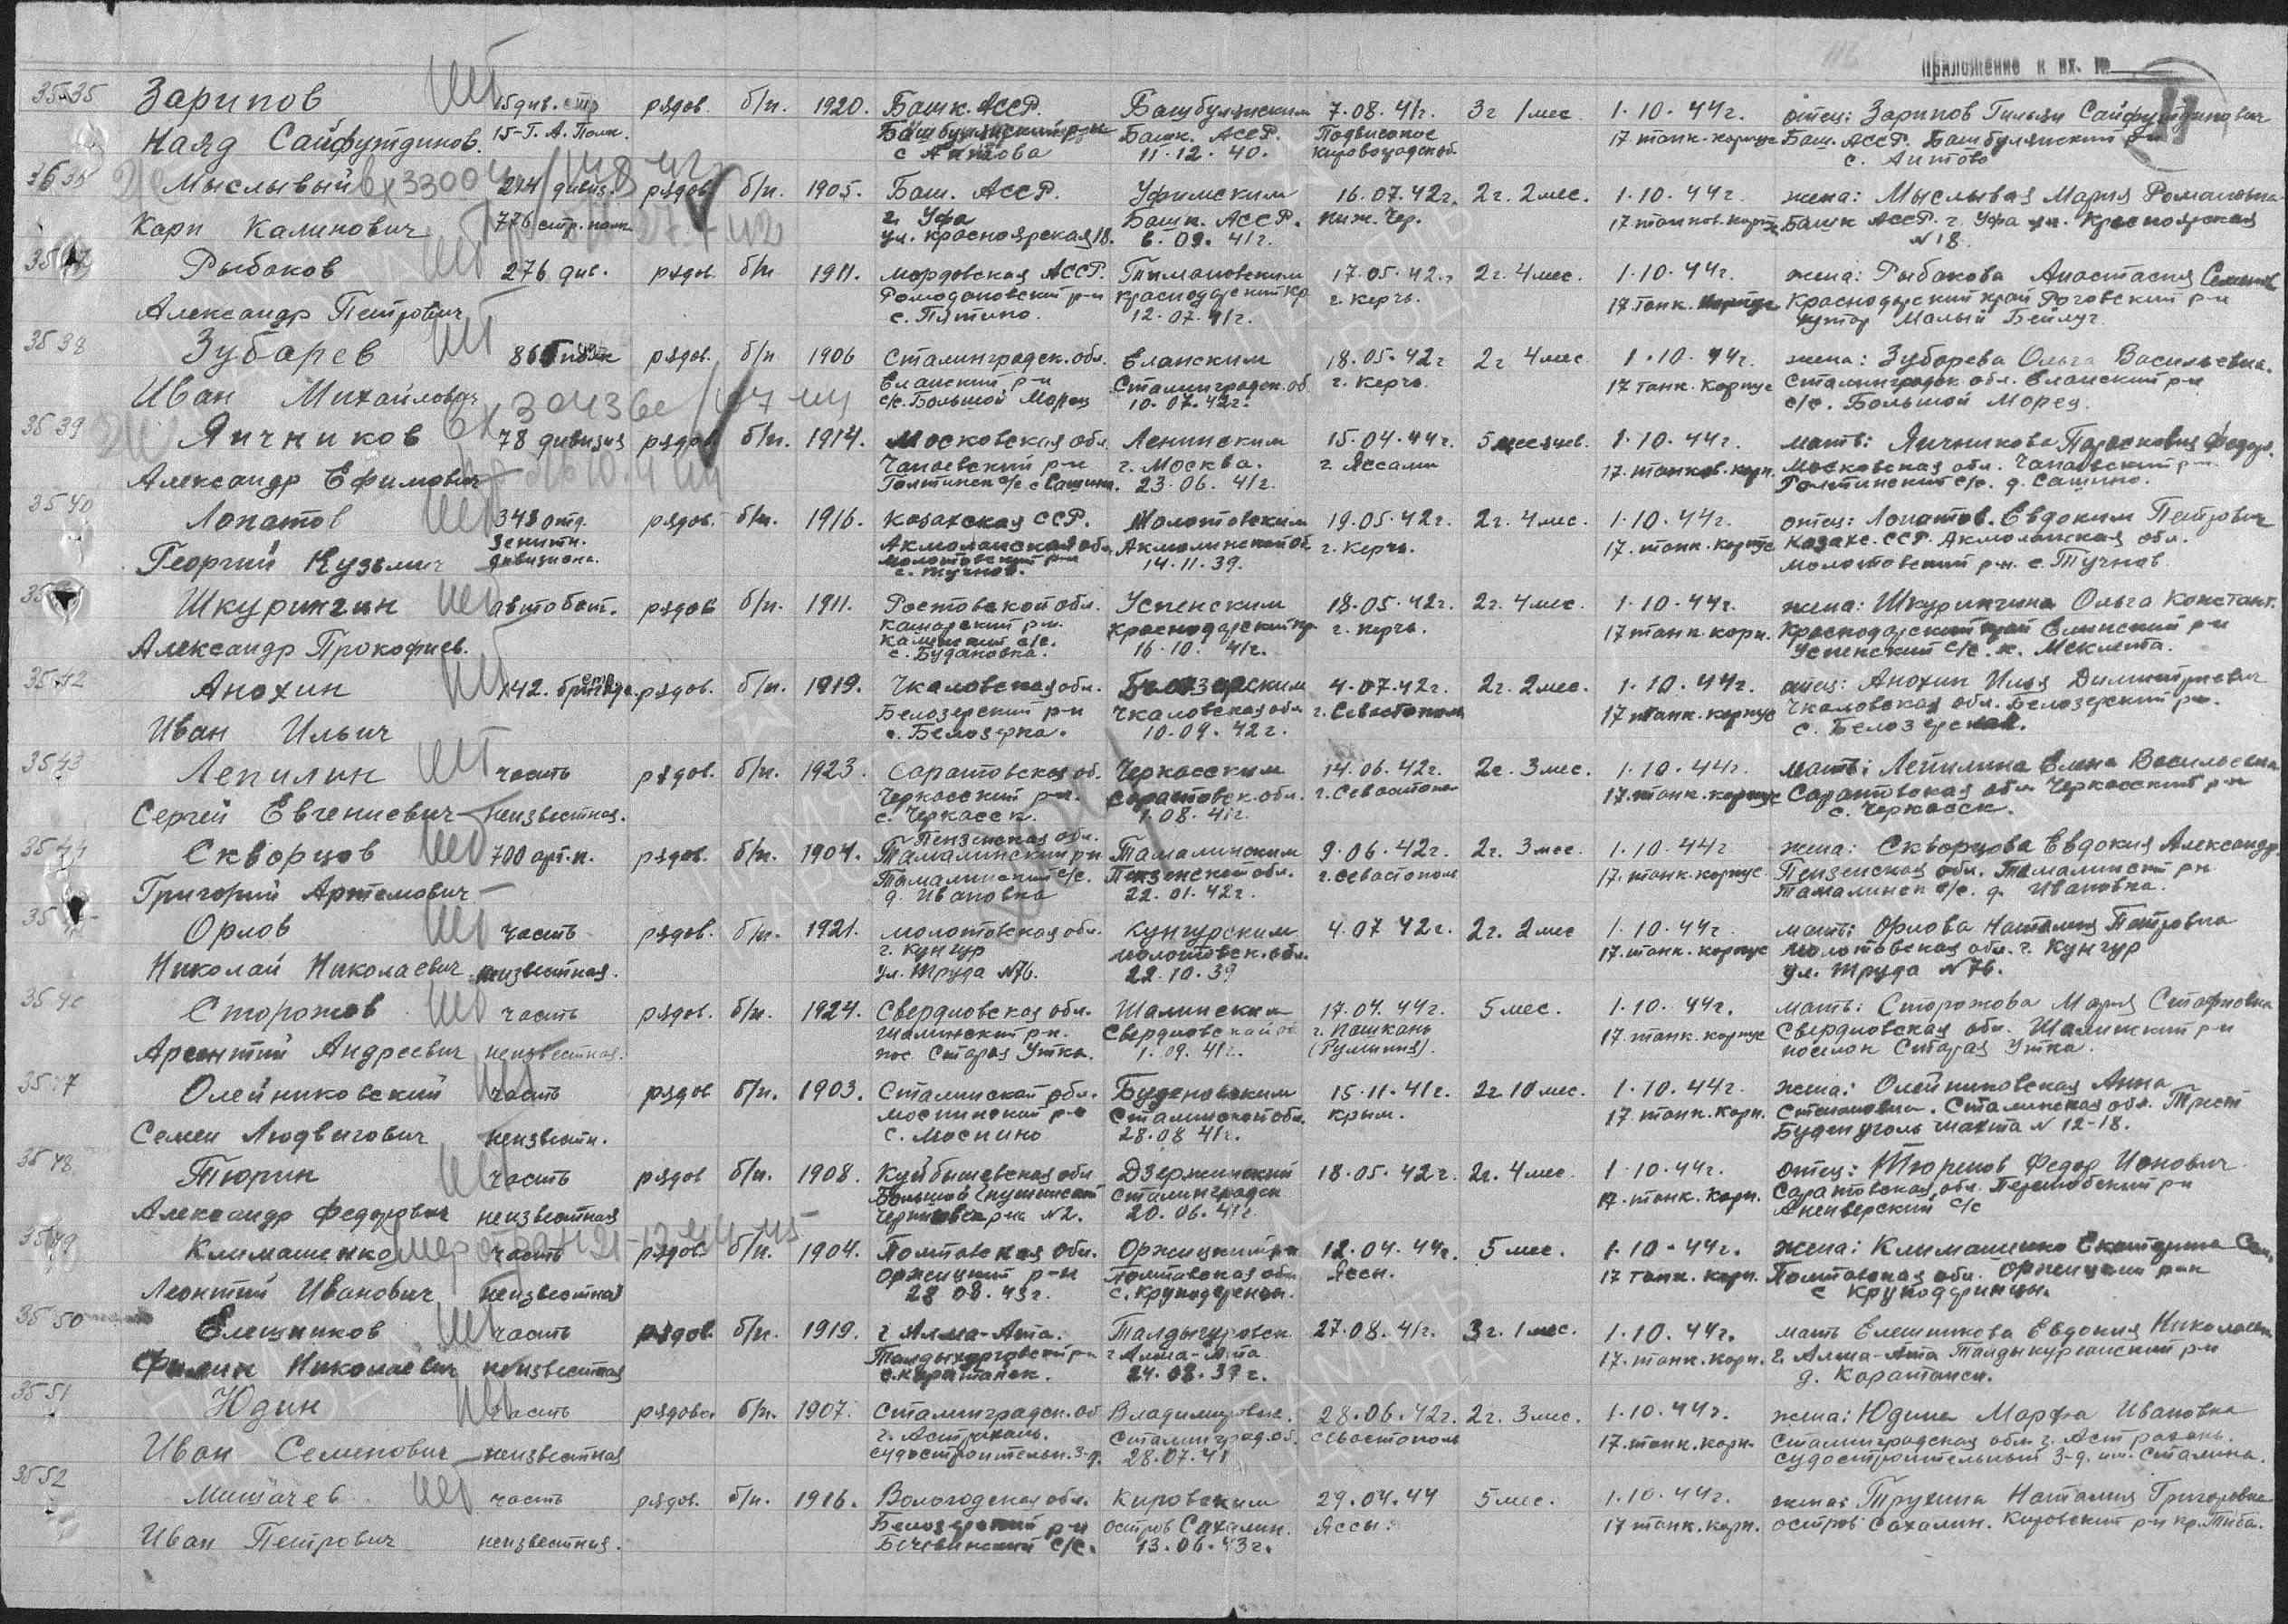 Приложение к вх. №
11
3535 Зарипов шт 15 див. стр рядов. б/п. 1920. Башк. АССР. Башбуляжским 7.08.41г. 3г 1мес. 1.10.44г. отец: Зарипов Гильязи Сайфутдинович
Наяд Сайфутдинов. 15-Г.А. Полк. Башбуляжский р-н Башк. АССР. Подвысокое 17 танк. корпус Баш. АССР. Башбулякский р-н
с Аитова 11.12.40. Кировоградск об. с. Аитово
3536 Мыслывый вх 33004 274 дивиз. рядов. б/п. 1905. Баш. АССР. Уфимским 16.07.42г. 2г. 2мес. 1.10.44г. жена: Мыслывая Мария Романовна
Карп Калинович 776 стр. полк г. Уфа Башк. АССР. Ниж. Чер. 17 танков. корп. Башк АССР. г. Уфа ул. Красноярская
ул. Красноярская 18. 6.09.41г. №18
Рыбаков шт 276 див. рядов б/п 1911. Мордовская АССР. Тимашовским 17.05.42г. 2г. 4мес. 1.10.44г. жена: Рыбакова Анастасия Семен
Александр Петрович Ромодановский р-н Краснодарский кр г. Керчь. 17 танк. корпус Краснодарский край Роговский р-н
с. Пятино. 12.07.41г. хутор Малый Бейлуг
3538 Зубарев шт рядов. б/п 1906 Сталинградск. обл. Еланским 18.05.42г 2г 4мес. 1.10.44г. жена: Зубарева Ольга Васильевна.
Иван Михайлович Еланский р-н Сталинградск. об г. Керчь. 17 танк. корпус Сталинградск обл. Еланский р-н
вх 30436с с/с. Большой Морец 10.07.42г. с/с. Большой Морец.
3539 Яичников 78 дивизия рядов б/п. 1914. Московская обл. Ленинским 15.04.44г. 5 месяцев. 1.10.44г. мать: Яичникова Парасковия Федор.
Александр Ефимович г. Москва. г. Яссами 17. танков. корп. Московская обл.
23.06.41г. с/с. д. Сашино.
3540 Лопатов шт 348 отд. рядов. б/п. 1916. Казахская ССР. Молотовским 19.05.42г. 2г. 4мес. 1.10.44г. отец: Лопатов. Евдоким Петрович
зенитн. Акмолинская обл. Акмолинской об. г. Керчь. 17. танк. корпус Казахс. ССР. Акмолинская обл.
Георгий Кузьмич дивизиона. Молотовский р-н 14.11.39. Молотовский р-н. с. Тучков.
Шкурингин шт автобат. рядов б/п. 1911. Ростовской обл. Успенским 18.05.42г. 2г. 4мес. 1.10.44г. жена: Шкурингина Ольга Констант.
Александр Прокофиев. Кашарский р-н. Краснодарский кр г. Керчь. 17 танк. корп. Краснодарский край р-н
с. Будановка. 16.10.41г. Успенский с/с. х.
3542 Анохин шт 142. стр бригада. рядов. б/п. 1919. Чкаловская обл. Белозерским 4.07.42г. 2г. 2мес. 1.10.44г. отец: Анохин Илья Димитриевич
Белозерский р-н Чкаловская обл г. Севастополь 17 танк. корпус Чкаловская обл. Белозерский р-н.
Иван Ильич с. Белозерка. 10.09.42г. с. Белозерская.
3543 Лепилин шт часть рядов. б/п. 1923. Саратовская об. Черкасским 14.06.42г. 2г. 3мес. 1.10.44г. мать: Лепилина Елена Васильевна
Сергей Евгениевич неизвестная. Черкасский р-н. Саратовск. обл. г. Севастополь 17. танк. корпус Саратовская обл Черкасский р-н
с. Черкасск. 1.08.41г. с. Черкасск.
3544 Скворцов шт 700 арт.п. рядов. б/п. 1904. Пензенская обл. Тамалинский р-н Тамалинским 9.06.42г. 2г. 3мес. 1.10.44г жена: Скворцова Евдокия Александр
Григорий Артемович Тамалинский с/с. Пензенской обл. г. Севастополь 17. танк. корпус Пензенская обл. Тамалинский р-н
д. Ивановка 22.01.42г. Тамалинск с/с. д. Ивановка.
Орлов шт часть рядов. б/п. 1921. Молотовская обл. Кунгурским 4.07.42г. 2г. 2мес 1.10.44г. мать: Орлова Наталия Петровна
Николай Николаевич неизвестная. г. Кунгур Молотовск. обл. 17. танк. корпус Молотовская обл. г. Кунгур
ул. Труда №76. 22.10.39 ул. Труда №76.
3546 Сторожов шт часть рядов. б/п. 1924. Свердловская обл. Шалинским 17.04.44г. 5мес. 1.10.44г. мать: Сторожова Мария Стафиовна
Арсентий Андреевич неизвестная. Шалинский р-н. Свердловской об г. Пашкань 17. танк. корпус Свердловская обл. Шалинский р-н
пос. Старая Утка. 1.09.41г. (Румыния). поселок Старая Утка.
3547 Олейниковский шт часть рядов б/п. 1903. Сталинской обл. Буденовским 15.11.41г. 2г. 10мес. 1.10.44г. жена: Олейниковская Анна
Моспинский р-н Сталинской обл. Крым. 17. танк. корп. Степановна. Сталинская обл. Трест
Семен Людвигович неизвестн. с. Моспино 28.08.41г. Буденуголь шахта №12-18.
3548 Тюрин шт часть рядов б/п. 1908. Куйбышевская обл Дзержинский 18.05.42г. 2г. 4мес. 1.10.44г. отец: Тюренов Федор Ионович
Александр Федорович неизвестная Сталинградск 20.06.41г. 17. танк. корп. Саратовская обл. с/с
3549 Климашенко часть рядов. б/п. 1904. Полтавская обл. Оржицкий р-н 12.04.44г. 5мес. 1.10.44г. жена: Климашенко Екатерина
Оржицкий р-н Полтавская обл. Яссы. 17 танк. корп. Полтавская обл. Оржицкий р-н
Леонтий Иванович неизвестная 28.08.43г. с. Круподеренцы. с Круподеринцы.
3550 Елешников шт часть рядов. б/п. 1919. г Алма-Ата. Талдыгуровск 27.08.41г. 3г. 1мес. 1.10.44г. мать Елешникова Евдокия Николаевн
Филип Николаевич неизвестная г Алма-Ата 17. танк. корп. г. Алма-Ата Талдыкурганский р-н
24.08.39г. д.
3551 Юдин шт часть рядовой б/п. 1907. Сталинградск. об Владимировск. 28.06.42г. 2г. 3мес. 1.10.44г. жена: Юдина Марфа Ивановна
Иван Семенович неизвестная г. Астрахань. Сталинград. об. Севастополь 17. танк. корп. Сталинградская обл. г. Астрахань.
судостроительн. з-д. 28.07.41 судостроительный з-д. им. Сталина.
3552 Мишачев шт часть рядов. б/п. 1916. Вологодская обл. Кировским 29.04.44 5мес. 1.10.44г. жена: Трухина Наталия Григоровна
Белозерский р-н остров Сахалин. Яссы. 17 танк. корп. остров Сахалин. Кировский р-н
Иван Петрович неизвестная. Бечевинский с/с. 13.06.43г.
ПАМЯТЬ НАРОДА